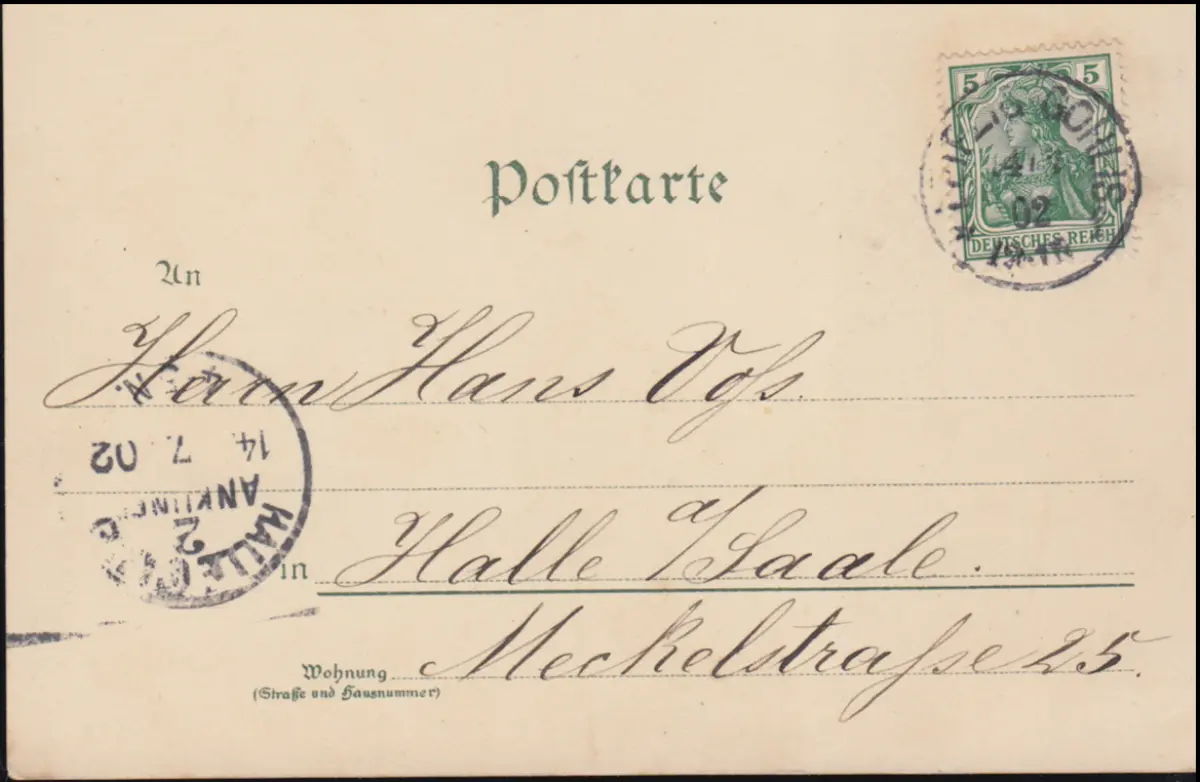 5 5
DEUTSCHES REICH
GOHLIS
02
Postkarte
An
Herrn Hans Voſs.
4-5N.
14. 7. 02
ANKUNFT
2
HALLE
in Halle a/Saale.
Wohnung Meckelstraſse 25.
(Straße und Hausnummer)